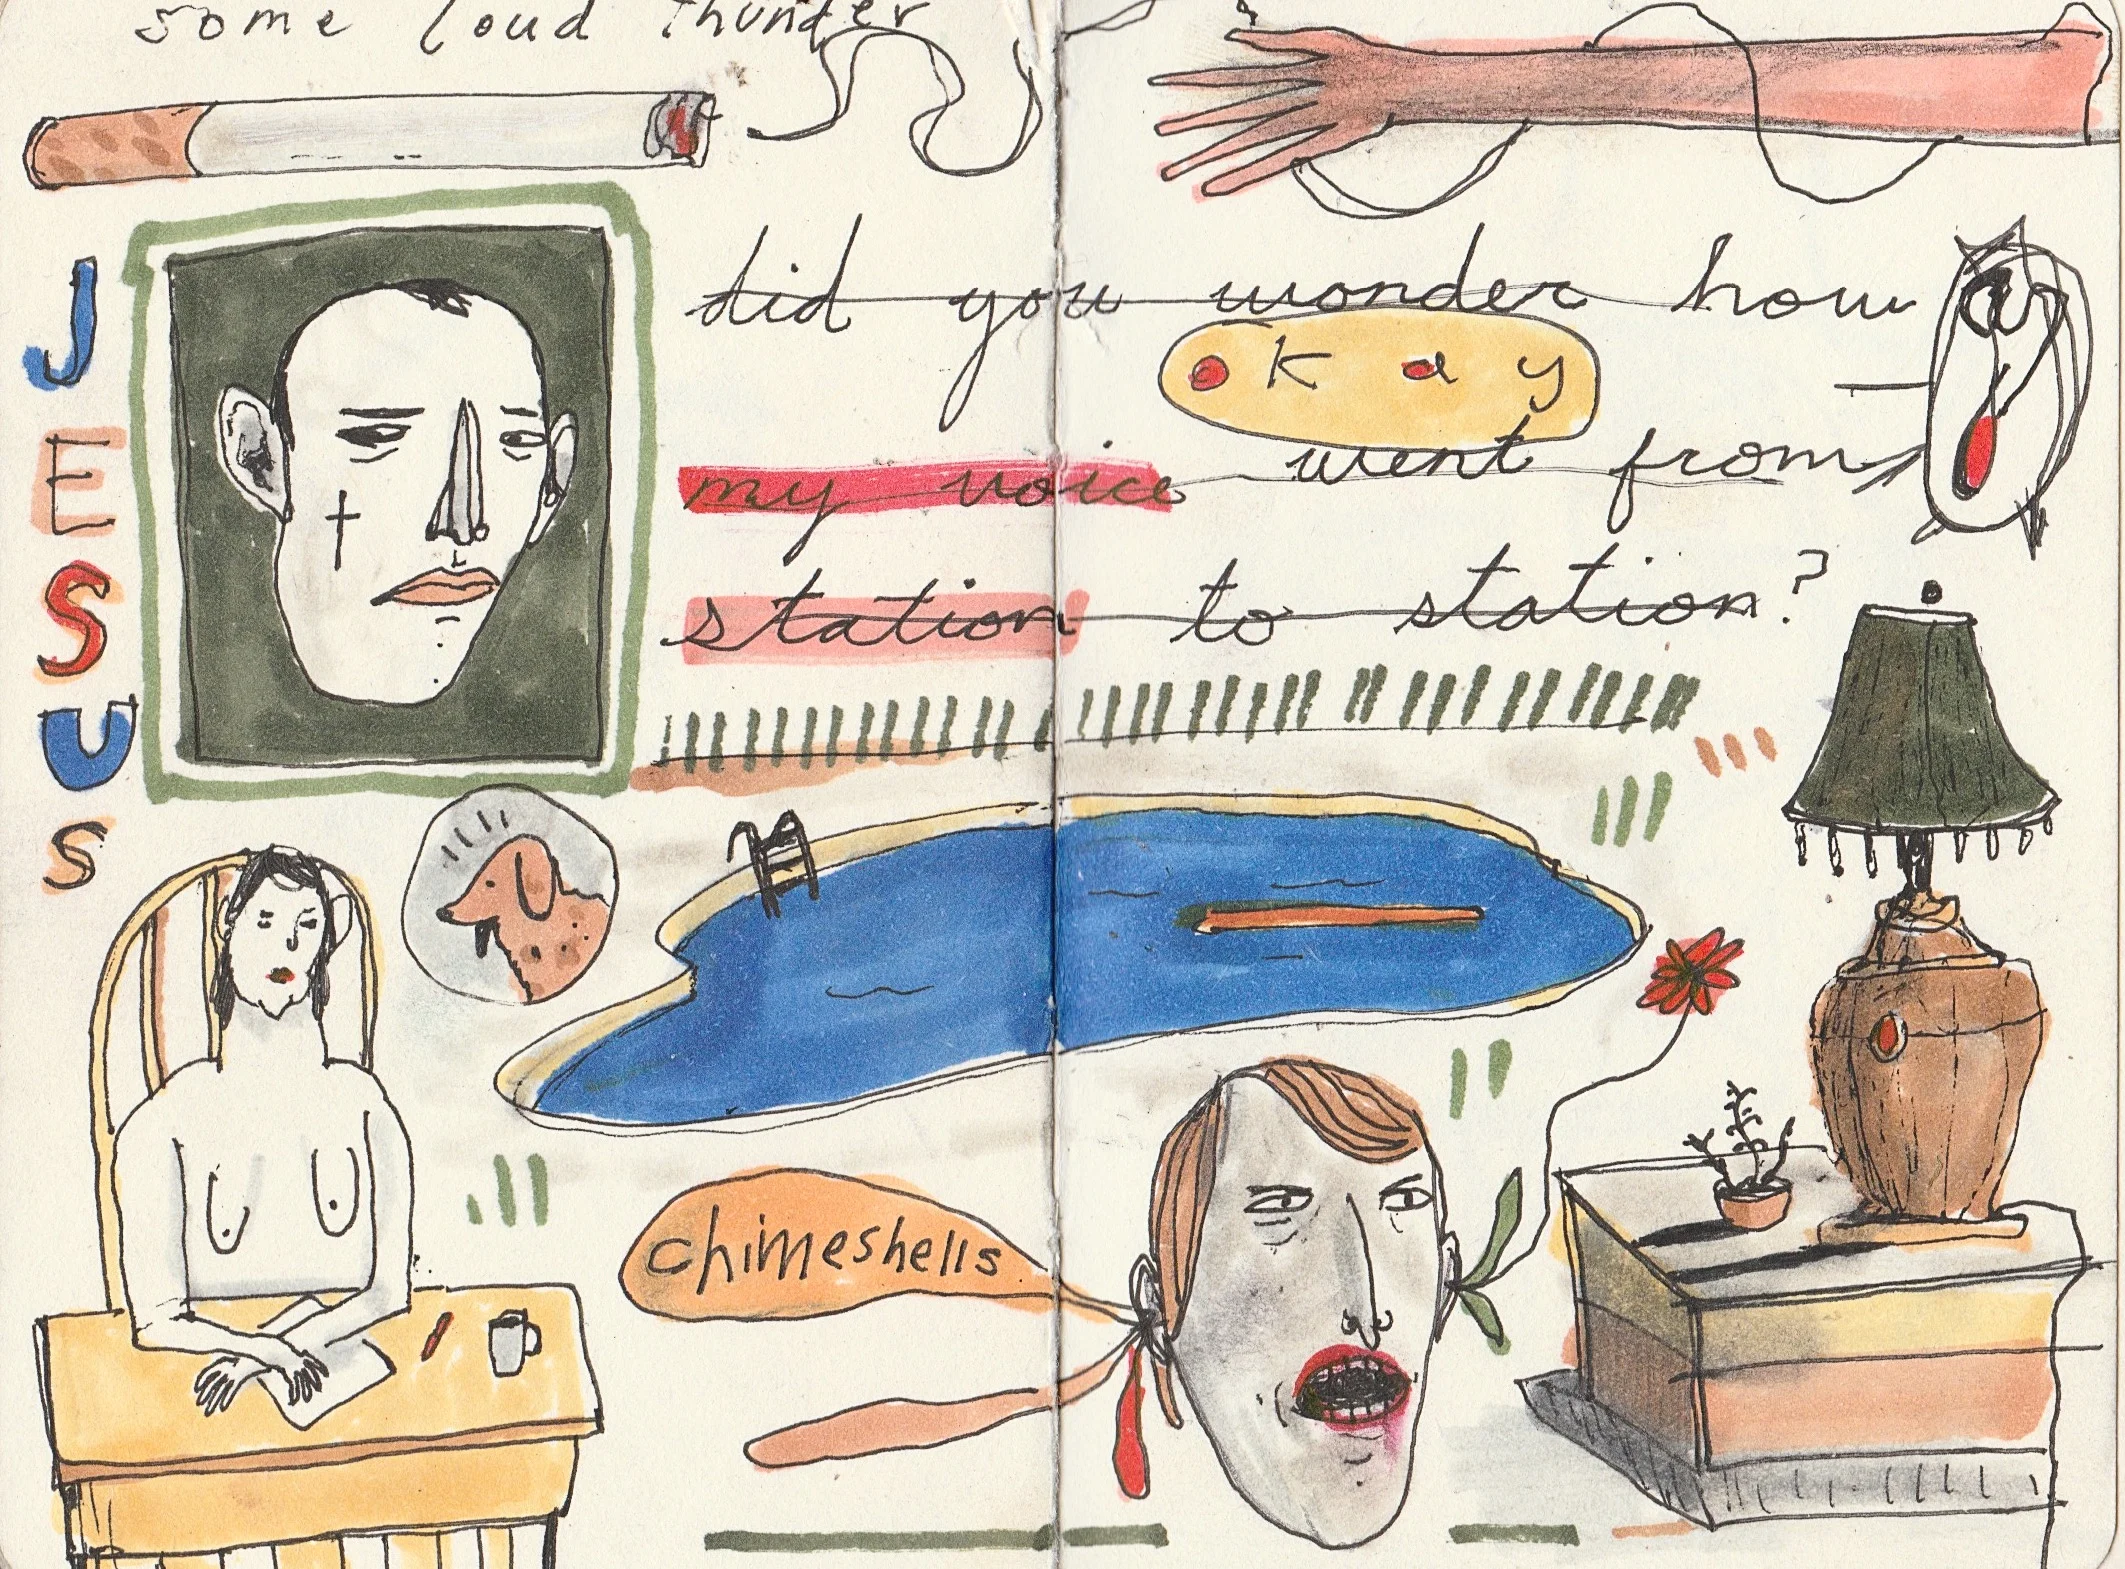 some loud thunder
JESUS
did you wonder how
okay
my voice went from
station to station?
chimeshells